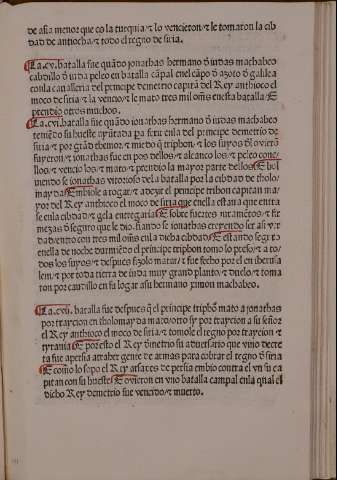 de asia menor que es la turquia ⁊ lo vencieron ⁊ le tomaron la cib
dad de antiocha ⁊ todo el regno de siria.
La .cv. batalla fue quãdo jonathas hermano õ iudas machabeo
cabdillo õ iuda peleo en batalla cãpal enel cãpo õ azoto õ galilea
con la caualleria del principe demetrio capitã del Rey anthioco el
moco de siria ⁊ la vencio ⁊ le mato tres mil oñis enesta batalla E
prendio otros muchos.
La .cvi. batalla fue quãdo jonathas hermano õ iudas machabeo
temiẽdo su hueste ayũtada pa ferir enla del principe demetrio de
siria ⁊ por grãd themor ⁊ miedo q̃ triphon ⁊ los suyos õl ovierõ
fuyeron ⁊ ionathas fue en pos dellos ⁊ alcanço los ⁊ peleo cone
llos ⁊ vencio los ⁊ mato ⁊ prendio la mayor parte dellos E bol
uiendo se ionathas vitorioso dela batalla por la cibdad de tholo
mayda Embiole a rogar ⁊ adezir el principe trifon capitan ma
yor del Rey anthioco el moco de siria que enella estaua que entra
se enla cibdad ⁊ gela entregaria E sobre fuertes iuramẽtos ⁊ fir
mezas õ seguro que le dio. fiando se ionathas creyendo ser asi ver
dad entro con tres mil oñis enla dicha cibdad E estando seguro
enella de noche durmiẽdo el principe triphon tomo lo preso ⁊ a to
dos los suyos ⁊ despues fizolo matar ⁊ fue fecho por el en iherusa
lem ⁊ por toda tierra de iuda muy grand planto ⁊ duelo ⁊ toma
ron por caudillo en su logar asu hermano ximon machabeo.
La .cvii. batalla fue despues q̃l el principe triphõ mato a jonathas
por traycion en tholomayda mato otrosy por traycion a su señor
el Rey anthioco el moco de siria ⁊ tomole el regno por traycion ⁊
tyrania E por esto el Rey dimetrio su aduersario que vino decre
ta fue apersia atraher gente de armas para cobrar el regno õ siria
E como lo sopo el Rey arsaces de persia embio contra el vn su ca
pitan con su hueste E ovieron en vno batalla campal enla qual el
dicho Rey demetrio fue vencido ⁊ muerto.